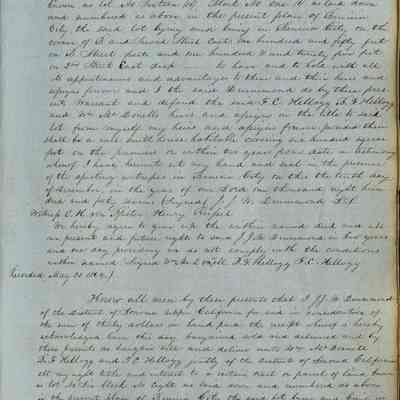 known as lot No Sixteen (16) Block No One (1) as laid down
and numbered as above in the present plan of Benicia
City the said lot lying and being in Benicia City on the
corner of B and Second Street East one hundred and fifty feet
on B Street and one hundred and twenty five feet
on 2nd Street East deep to have and to hold with all
its appurtenances and advantages to them and their heirs and
assigns forever and I the said Drummond do by these pres-
ents Warrant and defend the said F.C. Kellogg B.F. Kellogg
and Wm McDonell heirs and assigns in the title to said
lot from myself my heirs and assigns forever provided there
shall be a safe built house habitable covering six hundred square
feet on the premises or within two years from date in testimony
whereof I have hereunto set my hand and seal in the presence
of the apostery witnesses in Benicia City on this the tenth day
of December in the year of our Lord one thousand eight hun-
dred and forty seven (Signed) J. W. Drummond
Witness C.H. von Pfister Henry
We hereby agree to give up the within named deed and all
our present and future right to same J.W. Drummond in two years
and one day providing we do not comply with the conditions
within named Signed Wm McDonell B.F. Kellogg F.C. Kellogg
Recorded May 31
Know all men by these presents that I J. W. Drummond
of the district of Sonoma Upper California for and in consideration of
the sum of thirty dollars in hand paid the receipt whereof is hereby
acknowledged have this day bargained sold and delivered and by
these presents do bargain sell and deliver unto Wm McDonell
B.F. Kellogg and F.C. Kellogg jointly of the district of Sonoma California
all my right title and interest to a certain tract or parcel of land known
as lot No Six Block No Eight as laid down and numbered as above
in the present plan of Benicia City the said lot lying and being in